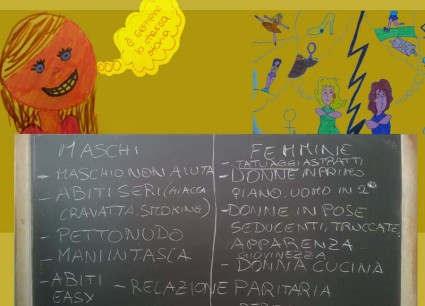 È SEMPRE
MASCHI
- MASCHIO NON AIUTA
- ABITI SERI (GIACCA
CRAVATTA. SMOKING)
- PETTO NUDO
- MANI IN TASCA
- ABITI
EASY
FEMMINE
- TATUAGGI ASTRATTI
- DONNE IN PRIMO
PIANO, UOMO IN 2°
- DONNE IN POSE
SEDUCENTI, TRUCCATE,
APPARENZA
GIOVINEZZA
- DONNA CUCINA
- RELAZIONE PARITARIA